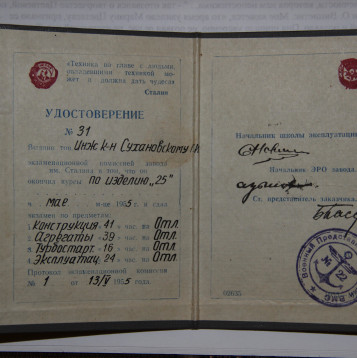 «Техника во главе с людьми,
овладевшими техникой мо-
жет и должна дать чудеса»
Сталин
УДОСТОВЕРЕНИЕ
№ 31
Выдано тов. Инж к-н Сухановскому
экзаменационной комиссией завода
им. Сталина в том, что он
окончил курсы по изделию „25"
в мае м-це 1955 г. и сдал
экзамен по предметам:
1. Конструкция - 41 час. на Отл.
2. Агрегаты - 39 час. на Отл.
3. Турбостарт. - 16 час. на Отл.
4. Эксплуатац. 24 час. на Отл.
Протокол экзаменационной комиссии
№ 1 от 13/V 1955 г.
Начальник школы эксплуатации
Начальник ЭРО завода
Ст. представитель заказчика
Военный Представитель